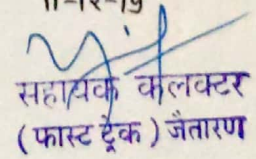 11-12-19
सहायक कलक्टर
( फास्ट ट्रेक ) जैतारण